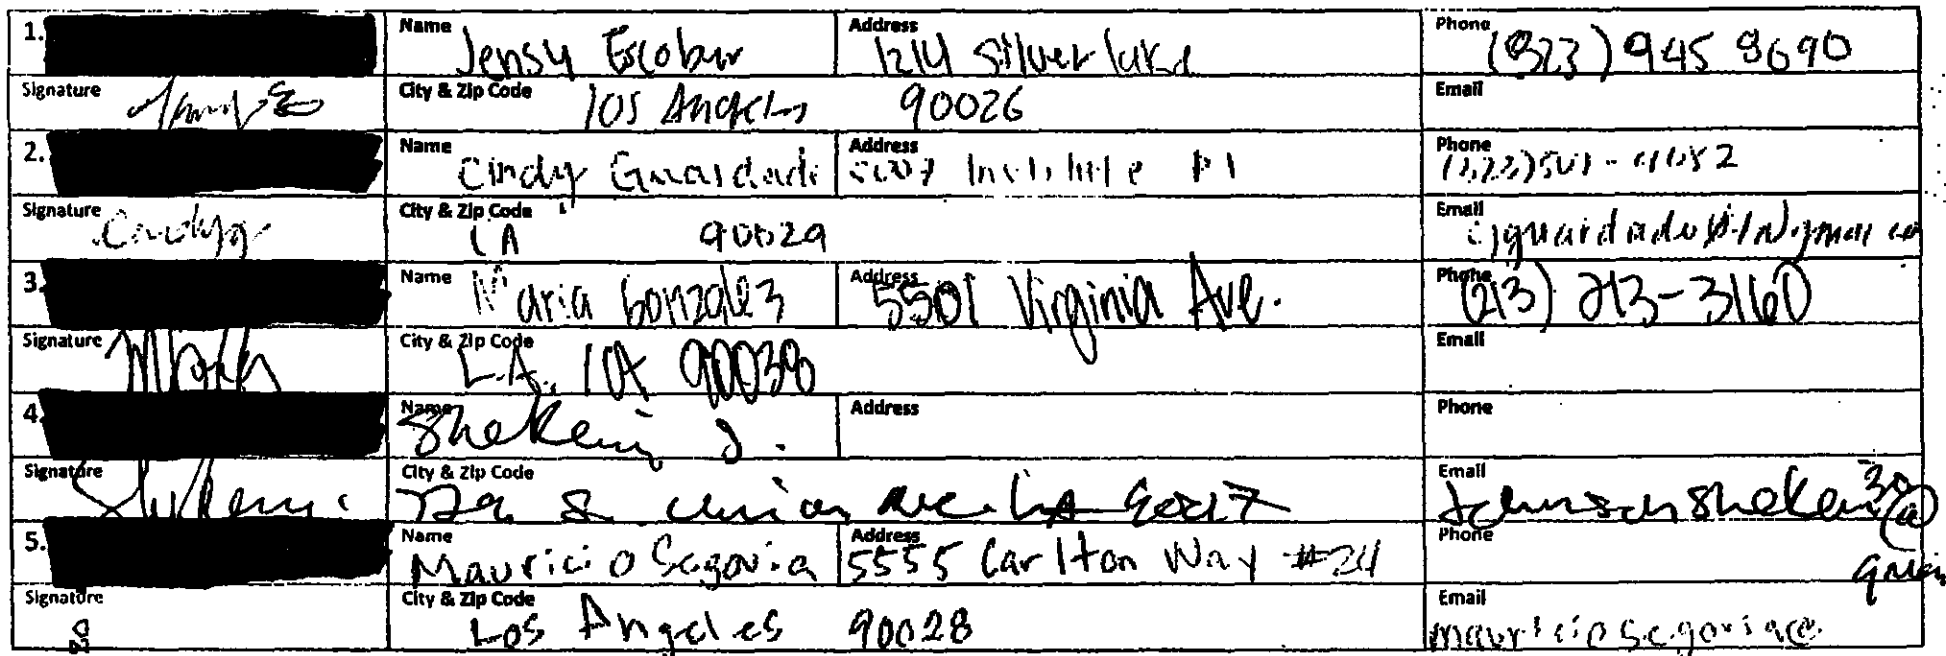 1. Name Jensy Escobar Address 1214 Silver lake Phone (323) 945 8690
Signature City & Zip Code los Angeles 90026 Email
2. Name Cindy Guardado Address Institute Pl Phone
Signature Cindy g City & Zip Code LA 90029 Email
3. Name Maria Gonzalez Address 5501 Virginia Ave. Phone (213) 213-3160
Signature City & Zip Code L.A. CA 90038 Email
4. Name Shekeni J. Address Phone
Signature Shekeni City & Zip Code S. union ave LA 90017 Email
5. Name Mauricio Segovia Address 5555 Carlton Way #24 Phone
Signature City & Zip Code Los Angeles 90028 Email mauriciosegovia@